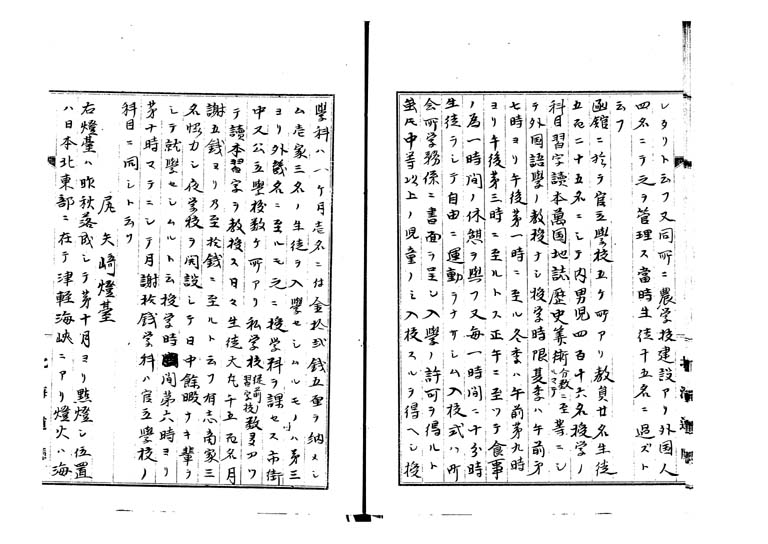 レタリト云フ又同所ニ農学校建設アリ外国人
四名ニテ之ヲ管理ス當時生徒千五名ニ過ズト
云フ
函館ニ於テ官立學校五ケ所アリ教員廿名生徒
五百二十五名ニシテ内男児四百十六名授学ノ
科目習字讀本萬国地誌歴史筭術分数ニ至ルマデ等ニシ
テ外国語学ノ教授ナシ授学時限夏季ハ午前第
七時ヨリ午後第一時ニ至ル冬季ハ午前第九時
ヨリ午後第三時ニ至ルトス正午ニ至ツテ食事
ノ為一時間ノ休憩ヲ與フ又毎一時間ニ十分時
生徒ヲシテ自由ニ運動ヲナサシム入校式ハ所
会所学務係ニ書面ヲ呈シ入學ノ許可ヲ得ルト
雖氏中等以上ノ児童ノミ入校スルヲ得ヘシ授
學科ハ一ケ月壱名ニ付金拾弐銭五厘ヲ納メシ
ム壱家三名ノ生徒ヲ入學セシムルモノハ第三
ヨリ外幾名ニ至ルモ之ニ授学科ヲ課セス市街
中又公立學校数ケ所アリ私学校従前ノ習字校数多アリ
テ讀本習字ヲ教授ス日々生徒大凡千五百名月
謝五銭ヨリ乃至拾銭ニ至ルト云フ有志商家三
名協力シ夜学校ヲ開設シテ日中餘暇ナキ輩ヲ
シテ就學セシムルト云授学時間第六時ヨリ
第十時マテニシテ月謝拾銭学科ハ官立學校ノ
科目ニ同シト云フ
尻矢崎燈臺
右燈臺ハ昨秋落成シテ第十月ヨリ點燈シ位置
ハ日本北東部ニ在テ津軽海峡ニアリ燈火ハ海